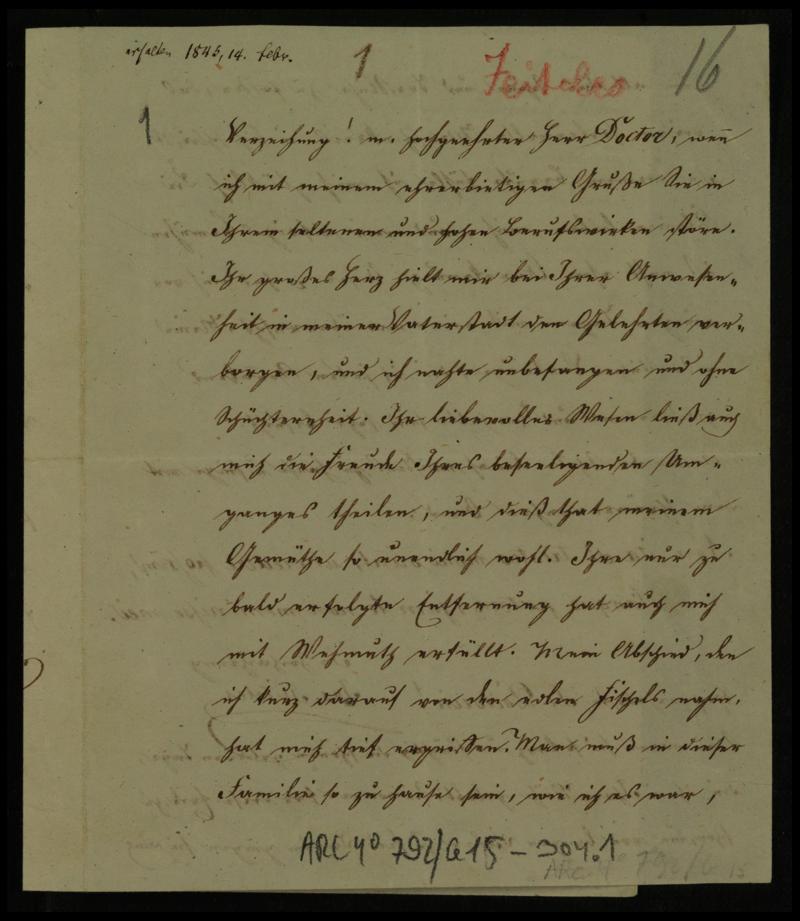 erhalten 1845, 14. Febr.
1
16
1
Verzeihung! m. hochgeehrter Herr Doctor, wenn
ich mit meinem ehrerbietigen Gruße Sie in
Ihrem seltenen und hohen Berufswirken störe.
Ihr großes Herz hielt mir bei Ihrer Anwesen-
heit in meiner Vaterstadt den Gelehrten ver-
borgen, und ich nahte unbefangen und ohne
Schüchternheit. Ihr liebevolles Wesen ließ auch
mich die Freude Ihres beseeligenden Um-
ganges theilen, und dieß that meinem
Gemüthe so unendlich wohl. Ihre nur zu
bald erfolgte Entfernung hat auch mich
mit Wehmuth erfüllt. Mein Abschied, den
ich kurz darauf von den edlen Fischels nahm,
hat mich tief ergriffen. Man muß in dieser
Familie so zu Hause sein, wie ich es war,
ARC 4° 792/G15 - 304.1